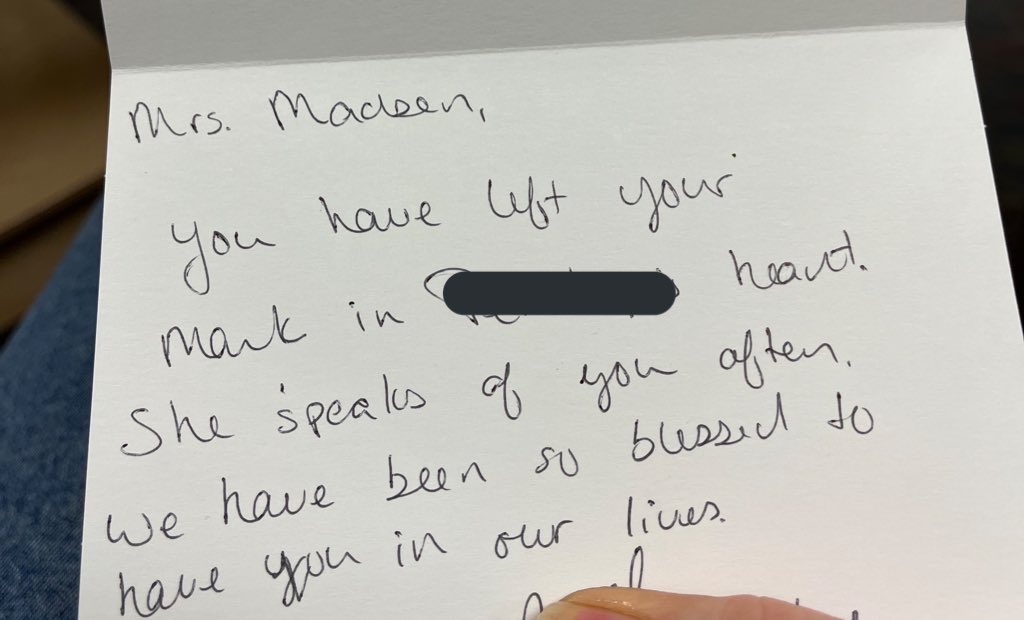 Mrs. Madsen,
you have left your
mark in heart.
She speaks of you often.
we have been so blessed to
have you in our lives.